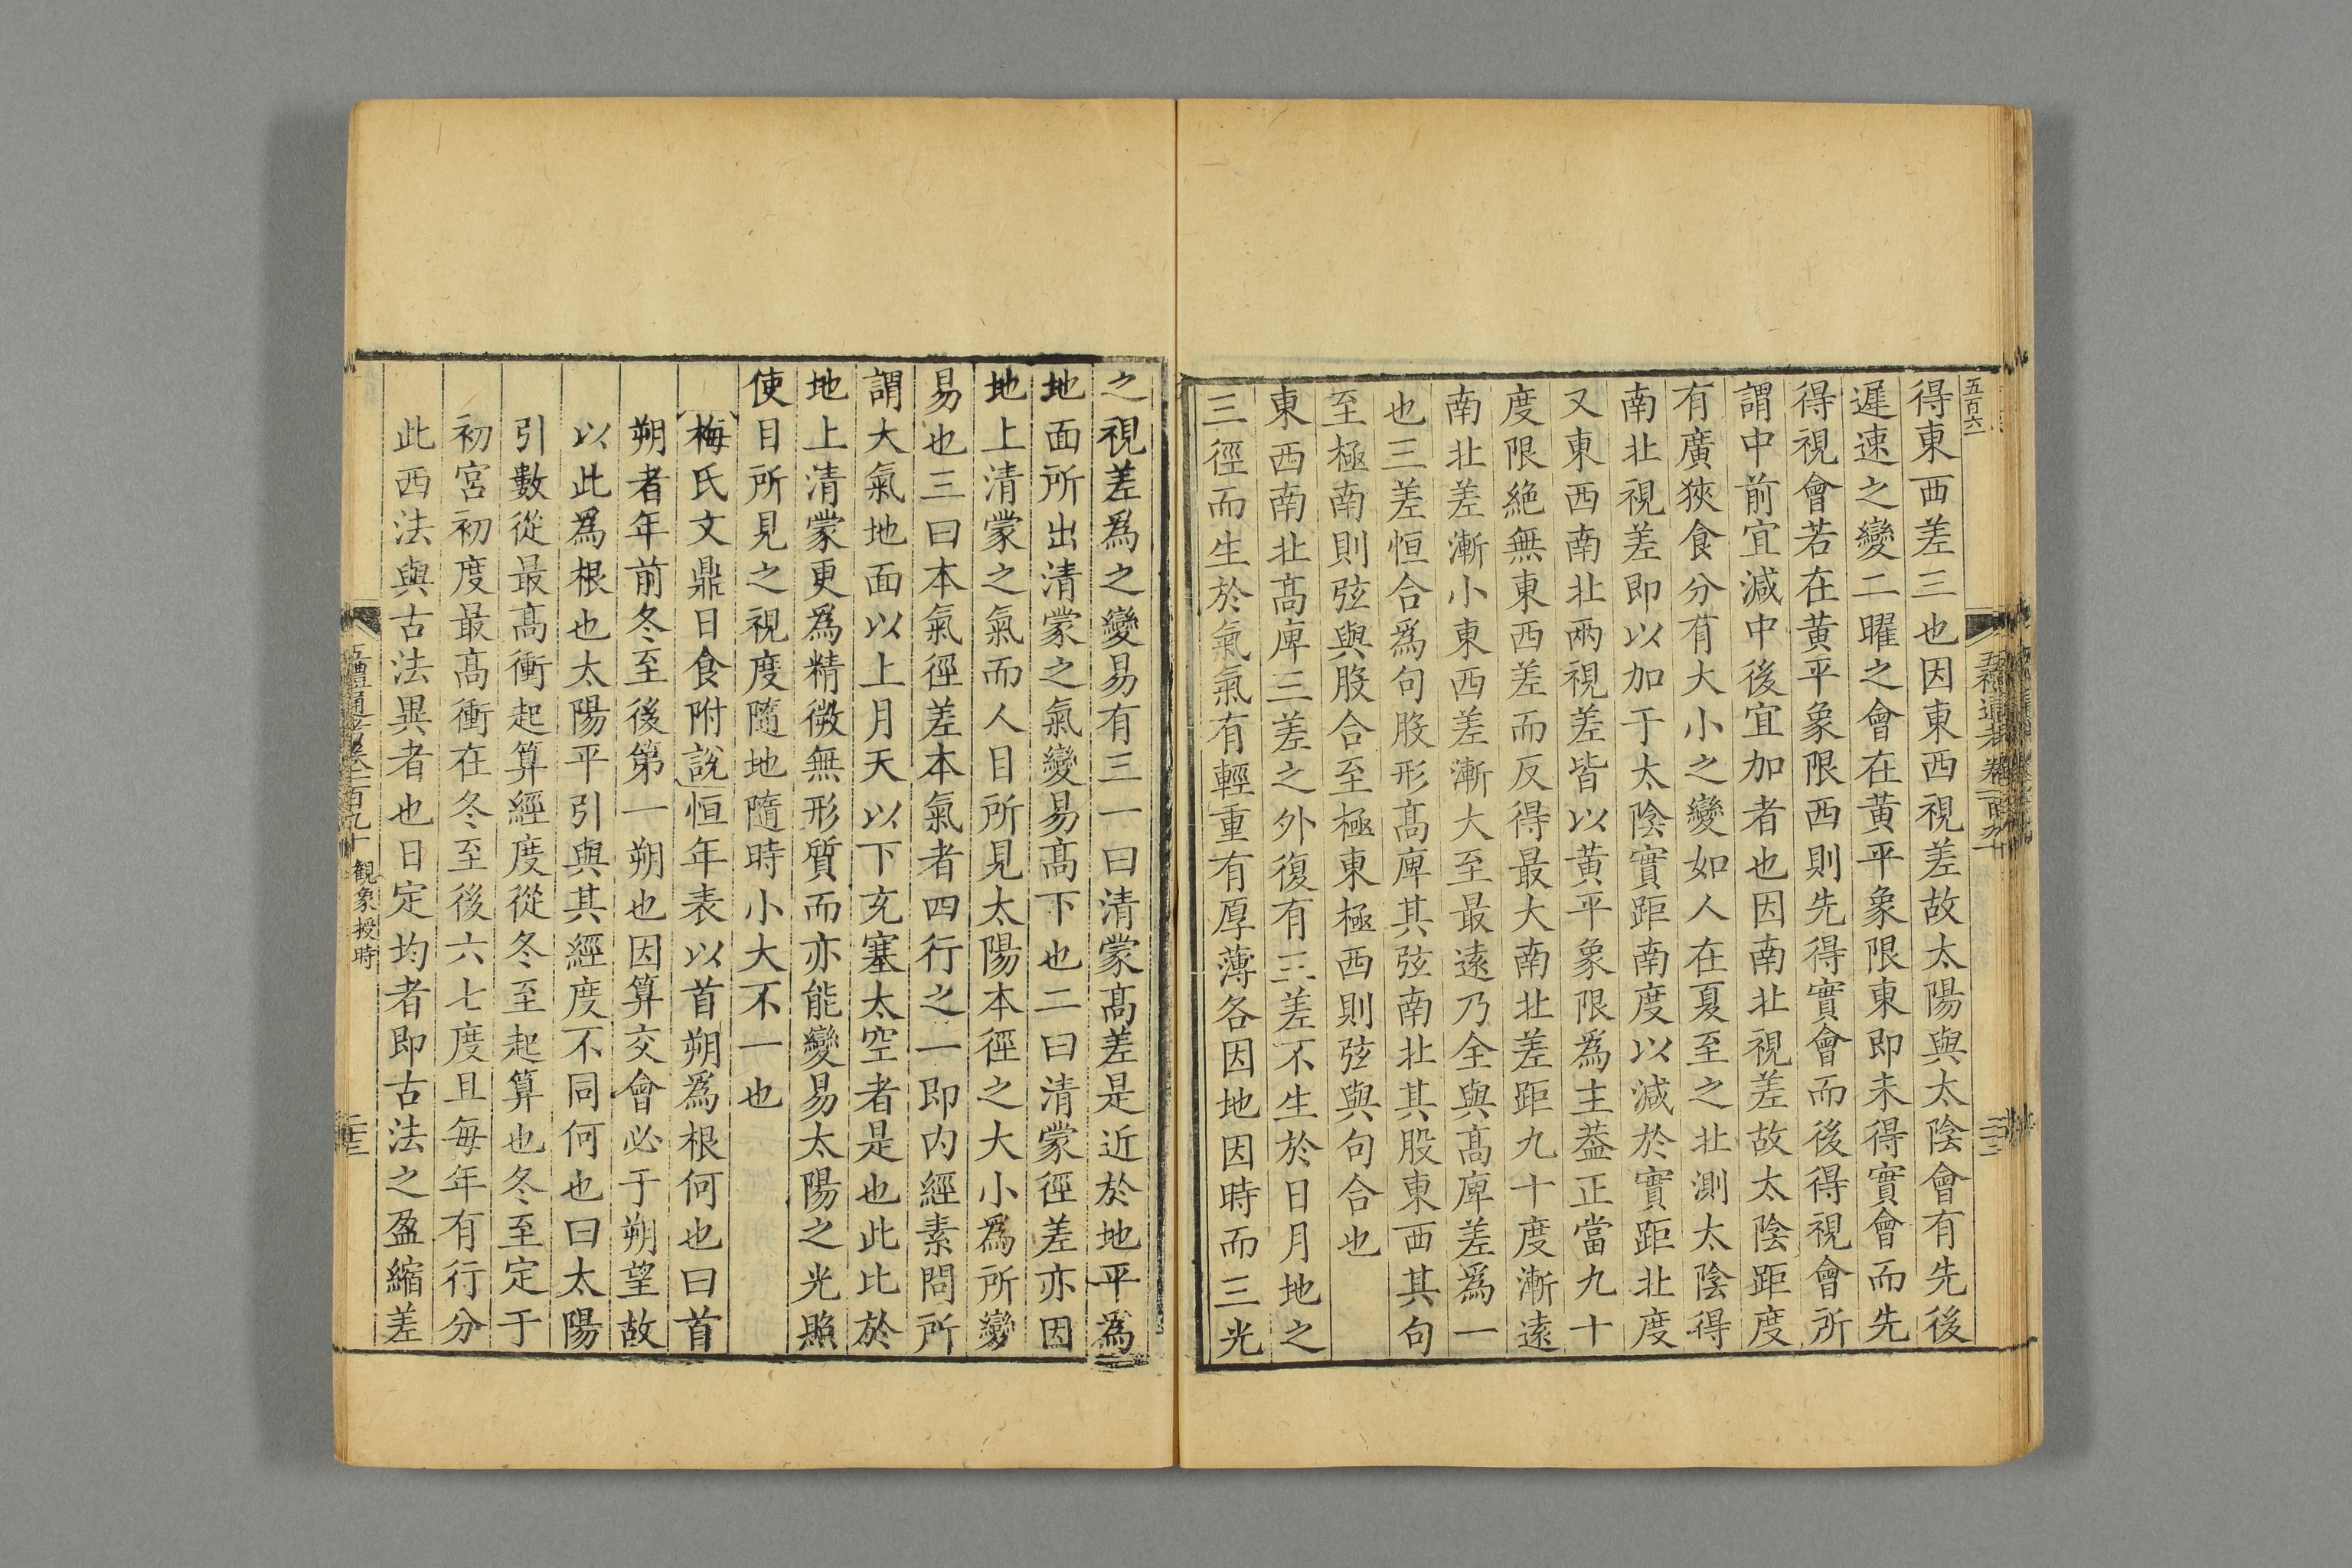 五百六
得東西差三也因東西視差故太陽與太陰會有先後
遲速之變二曜之會在黃平象限東即未得實會而先
得視會若在黃平象限西則先得實會而後得視會所
謂中前宜減中後宜加者也因南北視差故太陰距度
有廣狹食分有大小之變如人在夏至之北測太陰得
南北視差即以加于太陰實距南度以減於實距北度
又東西南北兩視差皆以黃平象限為主葢正當九十
度限絶無東西差而反得最大南北差距九十度漸遠
南北差漸小東西差漸大至最遠乃全與髙庳差爲一
也三差恒合爲句股形髙庳其弦南北其股東西其句
至極南則弦與股合至極東極西則弦與句合也
東西南北髙庳三差之外復有三差不生於日月地之
三徑而生於氣氣有輕重有厚薄各因地因時而三光
之視差爲之變易有三一曰清蒙髙差是近於地平爲
地面所出清蒙之氣變易髙下也二曰清蒙徑差亦因
地上清蒙之氣而人目所見太陽本徑之大小爲所變
易也三曰本氣徑差本氣者四行之一即内經素問所
謂大氣地面以上月天以下充塞太空者是也此比於
地上清蒙更爲精微無形質而亦能變易太陽之光照
使目所見之視度隨地隨時小大不一也
梅氏文鼎日食附說恒年表以首朔爲根何也曰首
朔者年前冬至後第一朔也因算交會必于朔望故
以此爲根也太陽平引與其經度不同何也曰太陽
引數從最髙衝起算經度從冬至起算也冬至定于
初宮初度最髙衝在冬至後六七度且每年有行分
此西法與古法異者也日定均者即古法之盈縮差
五禮通考卷一百九十
觀象授時
二十三